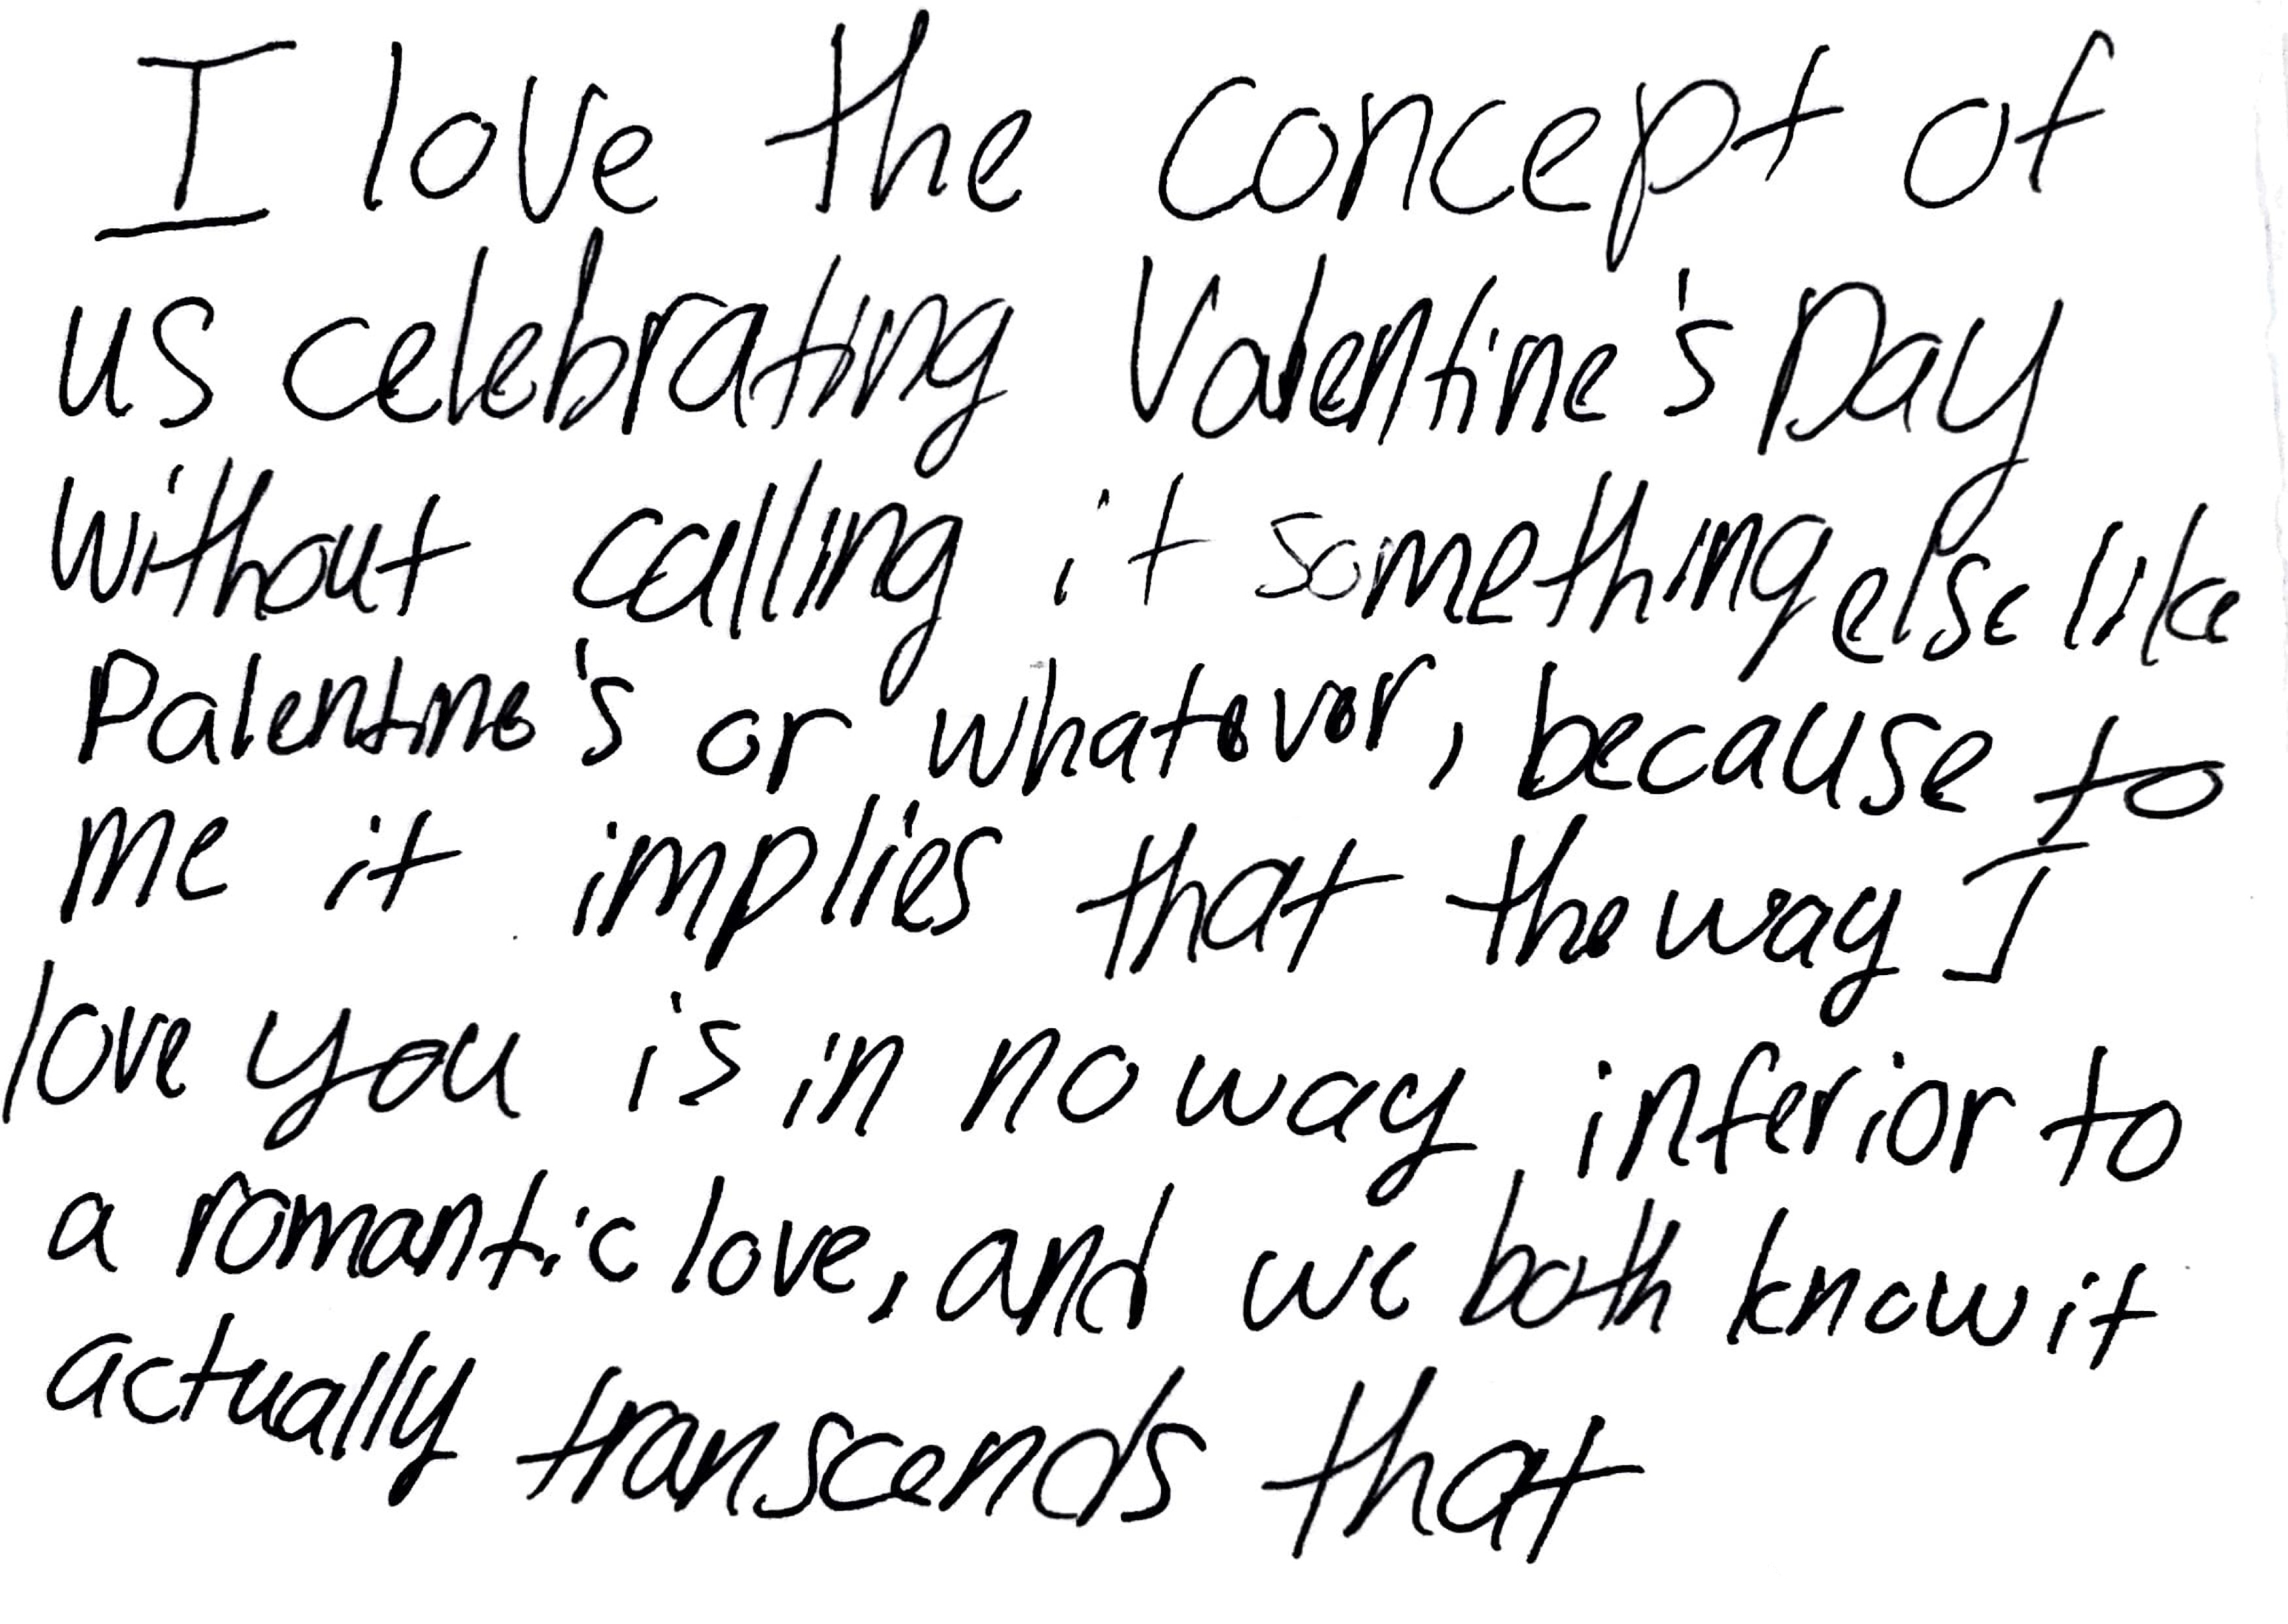 I love the concept of
us celebrating Valentine's Day
without calling it something else like
Palentine's or whatever, because to
me it implies that the way I
love you is in no way inferior to
a romantic love, and we both know it
actually transcends that